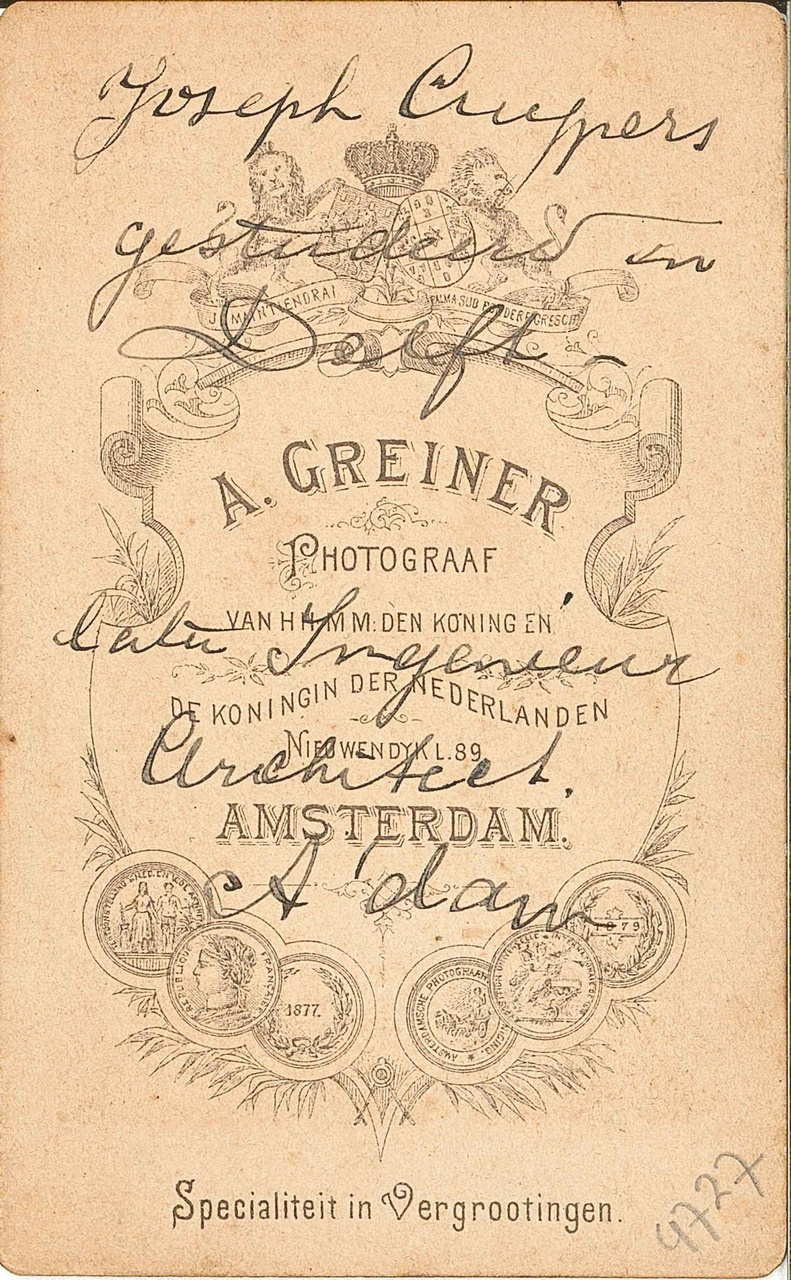 Joseph Cuypers
gestudeerd in
JE MAINTIENDRAI
PALMA SUB PONDERE CRESCIT
Delft -
A. GREINER
PHOTOGRAAF
VAN HH.MM: DEN KONING EN
later Ingenieur
DE KONINGIN DER NEDERLANDEN
NIEUWENDYK L. 89
Architect.
AMSTERDAM.
A'dam
REPUBLIQUE FRANÇAISE
1877.
AMSTERDAMSCHE PHOTOGRAAF
1879
Specialiteit in Vergrootingen.
4727